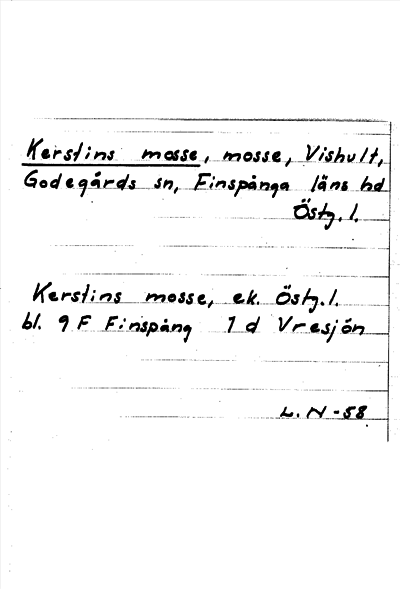 Kerstins mosse, mosse, Vishult,
Godegårds sn, Finspånga läns hd
Östg. l.
Kerstins mosse, ek. Östg. l.
bl. 9 F Finspång 1 d Vresjön
L. N -58